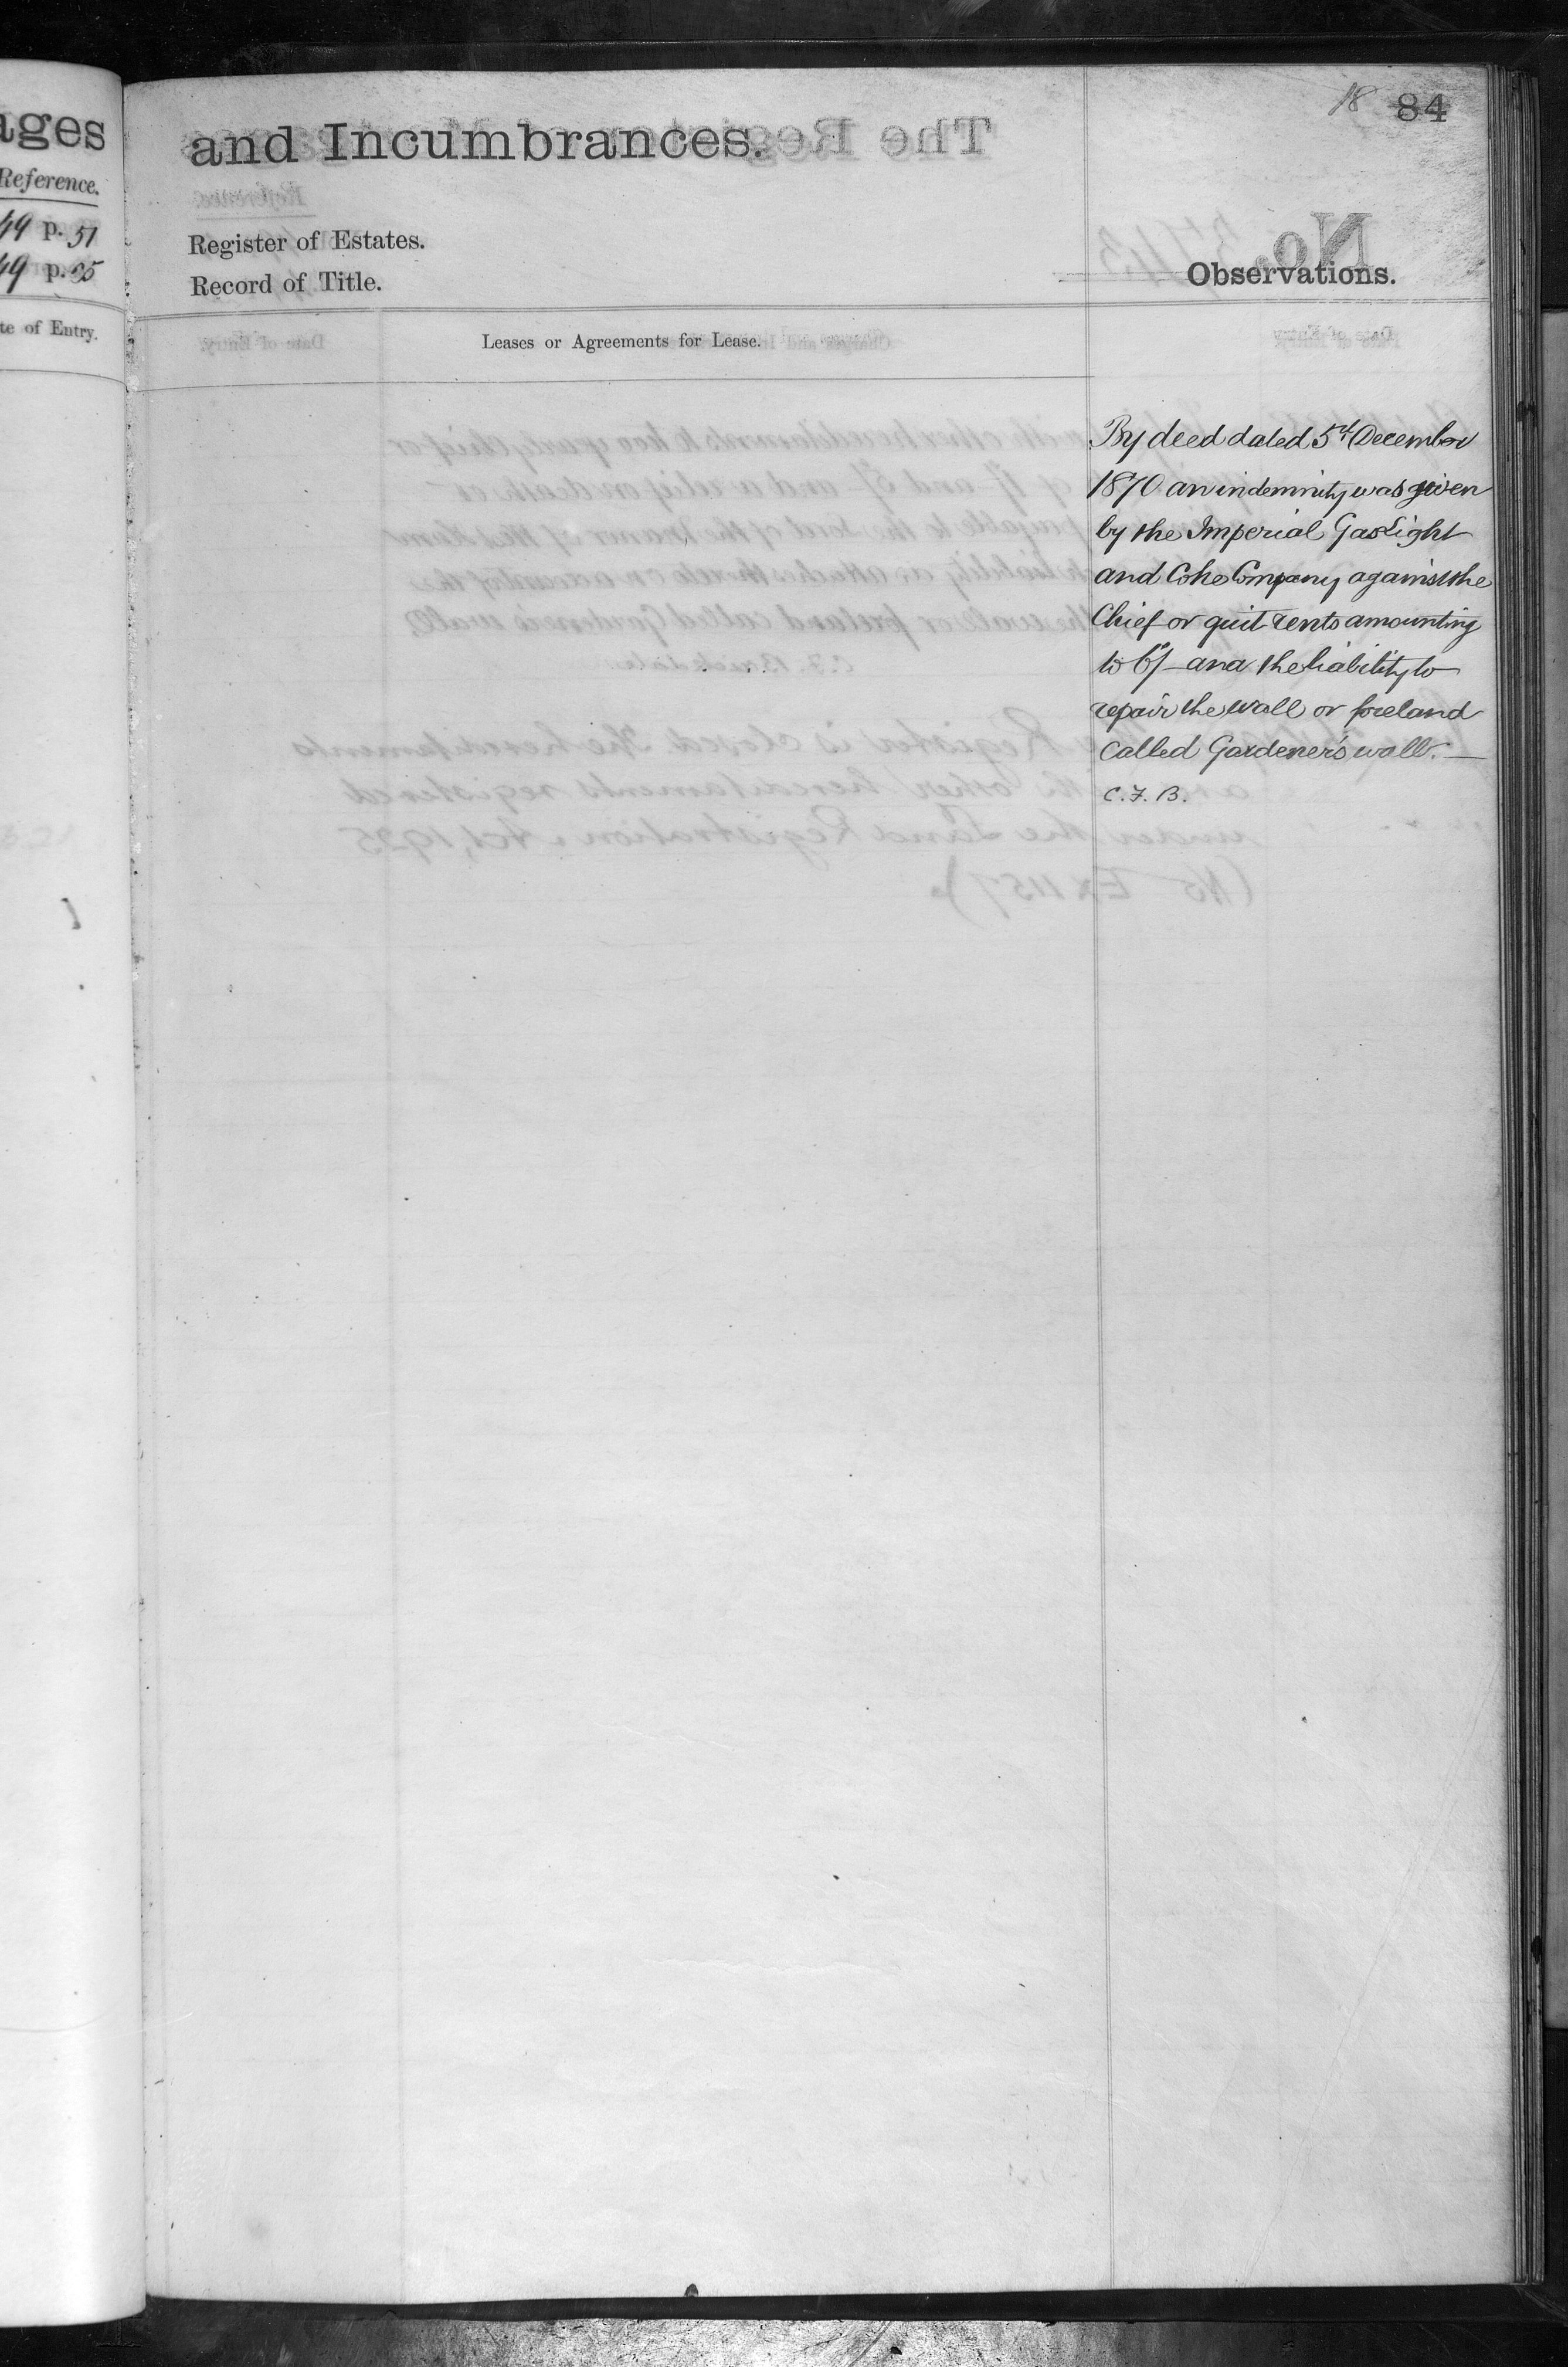 ages
Reference.
49 p. 51
49 p.
te of Entry.
18 84
and Incumbrances.
Register of Estates.
Record of Title.
Observations.
Leases or Agreements for Lease.
By deed dated 5th December
1870 an indemnity was given
by the Imperial Gas Light
and Coke Company against the
Chief or quit rents amounting
to 6/- and the liability to
repair the wall or foreland
called Gardener's wall.—
C.F.B.